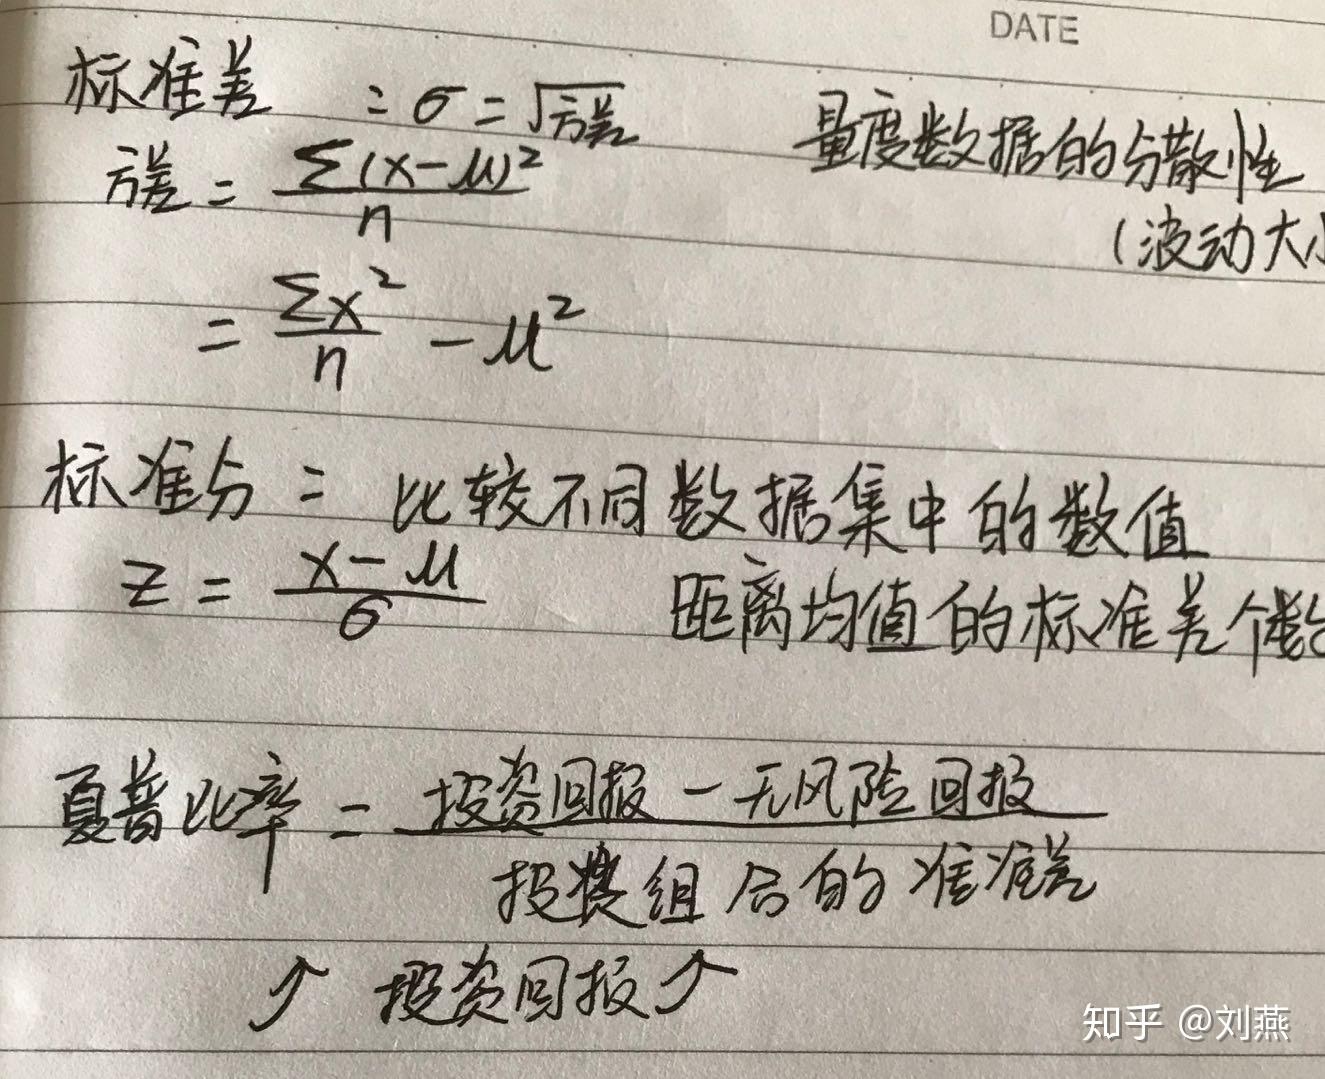 DATE
标准差 = σ = √方差 量度数据的分散性
方差 = Σ(x-μ)² / n (波动大小
= Σx² / n - μ²
标准分 = 比较不同数据集中的数值
z = x-μ / σ 距离均值的标准差个数
夏普比率 = 投资回报 - 无风险回报
投资组合的准准差
↗ 投资回报↗
知乎 @刘燕